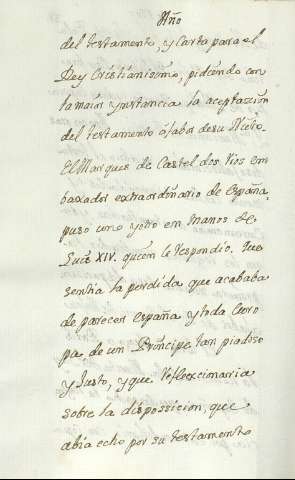 Año
del testamento, y Carta para el
Rey Cristianisimo, pidiendo con
la maior ynstancia la aceptazion
del testamento à fabor de su Nieto.
El Marques de Castel dos Rios em
baxador extraordinario de España,
puso uno y otro en manos de
Luis XIV. quien le respondio. Que
sentia la perdida que acababa
de parecer España y toda Euro
pa, de un Principe tan piadoso
y Justo, y que reflexcionaria
sobre la disposicion, que
abia echo por su testamento